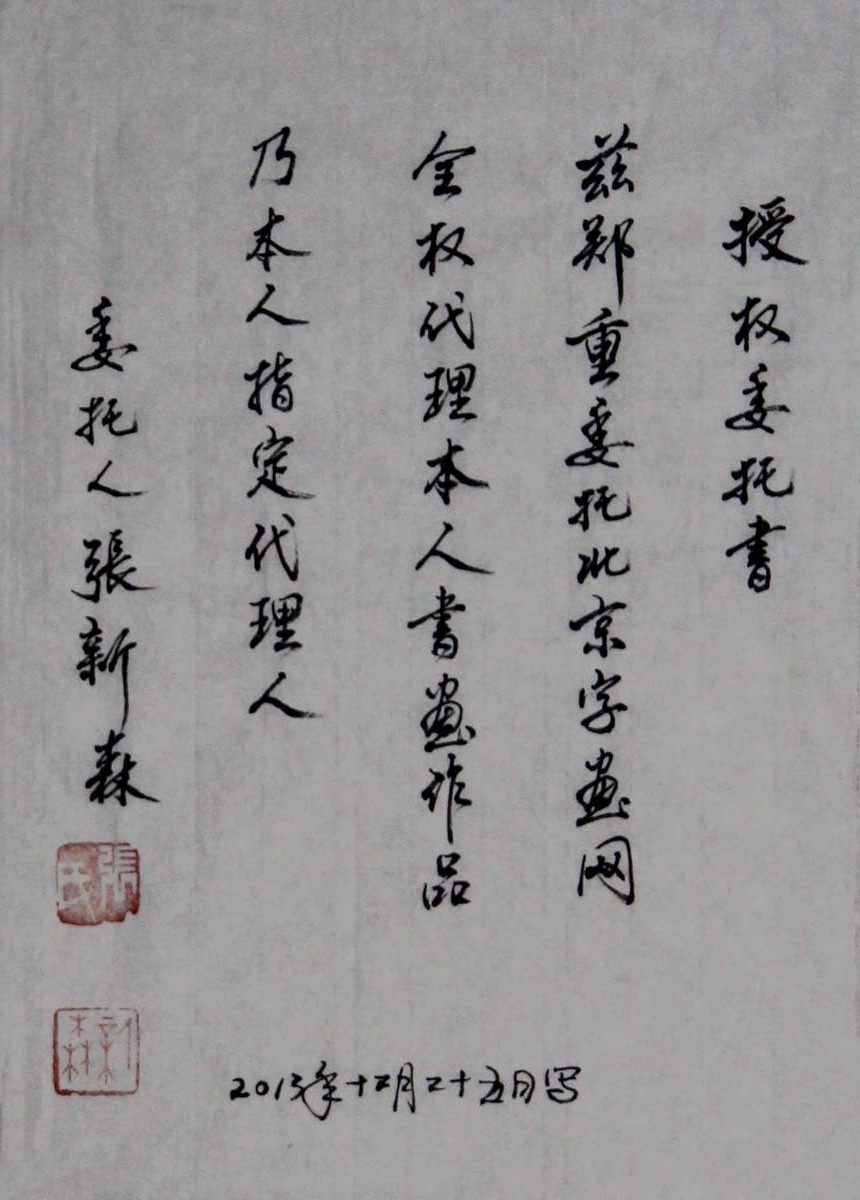 授权委托书
兹郑重委托北京字画网
全权代理本人书画作品
乃本人指定代理人
委托人張新森
張氏
新森
2013年十二月二十五日写